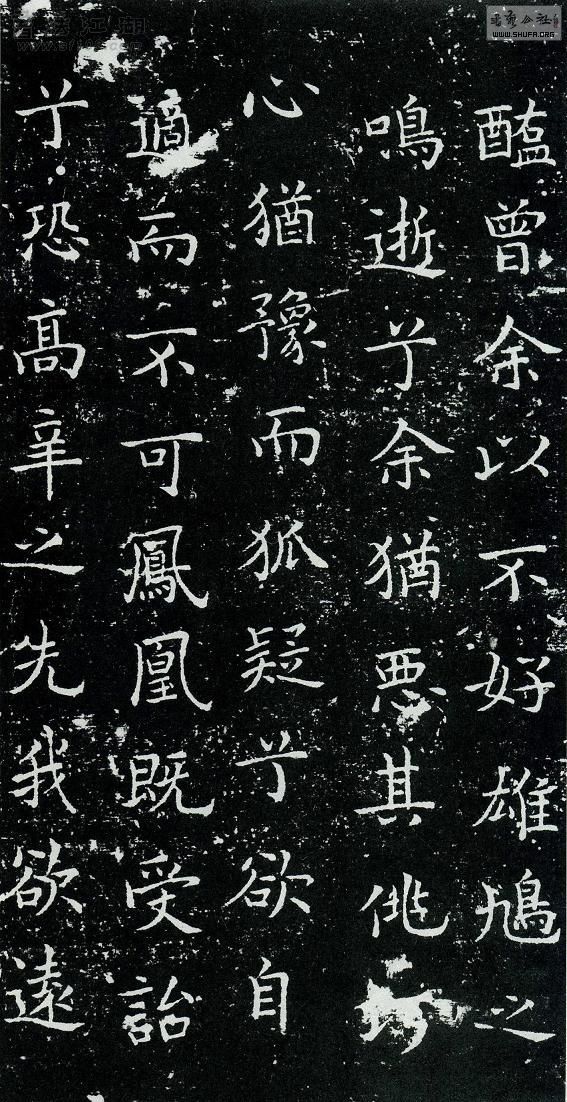 醢曾余以不好雄鳩之
鳴逝兮余猶惡其佻巧
心猶豫而狐疑兮欲自
適而不可鳳凰既受詒
兮恐髙辛之先我欲遠
WWW.SHUFA.ORG